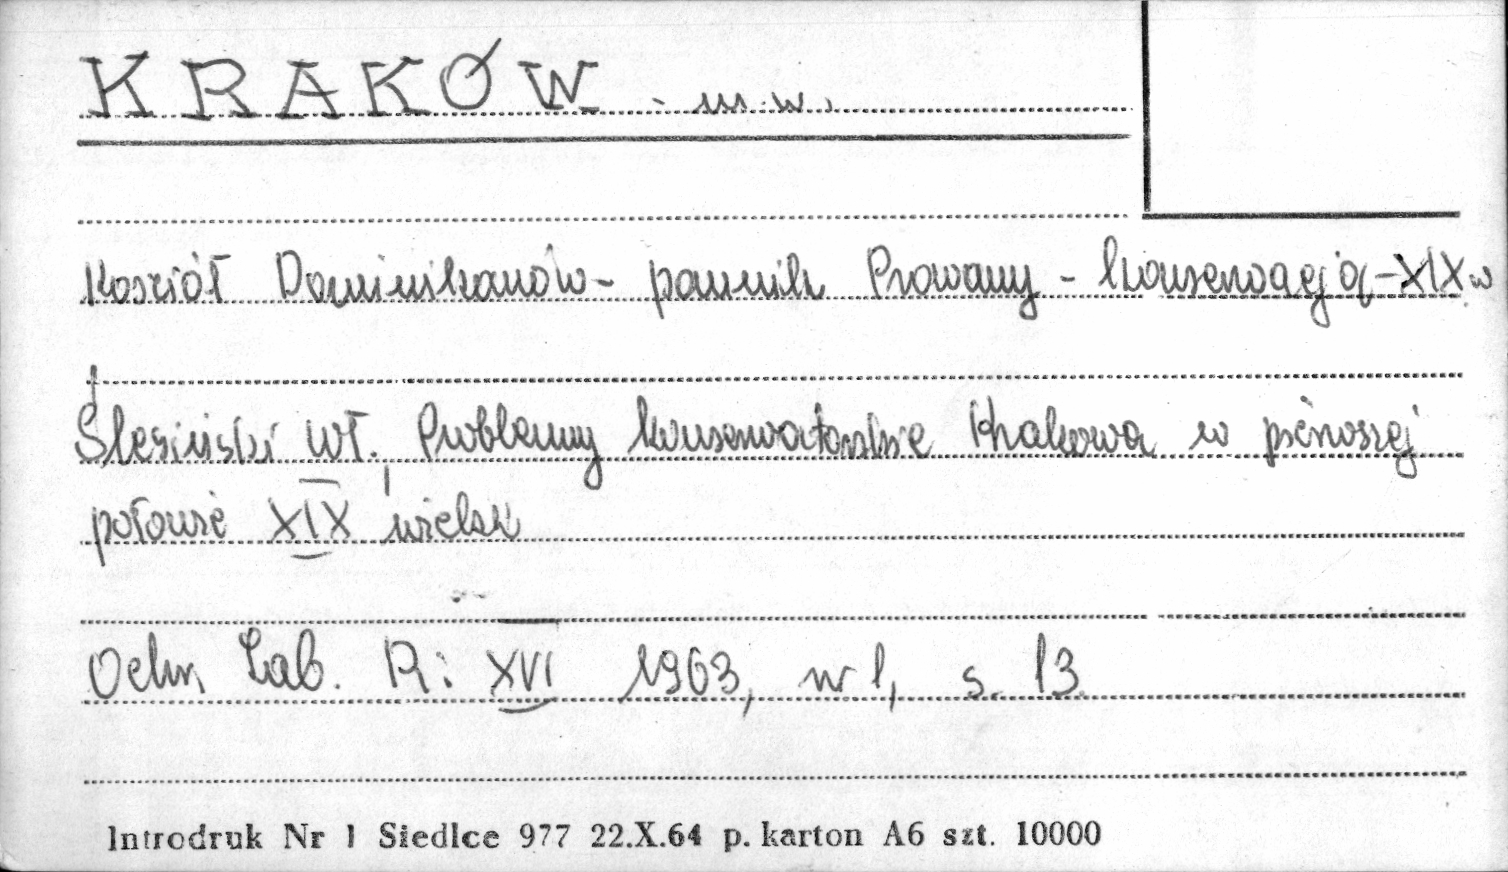 KRAKÓW - m.w.
Kościół Dominikanów - pomnik Prowany - konserwacja - XIX w
Ślesiński Wł., Problemy konserwatorskie Krakowa w pierwszej
połowie XIX wieku
Ochr. Zab. R: XVI 1963, nr 1, s. 13.
Introdruk Nr 1 Siedlce 977 22.X.64 p. karton A6 szt. 10000